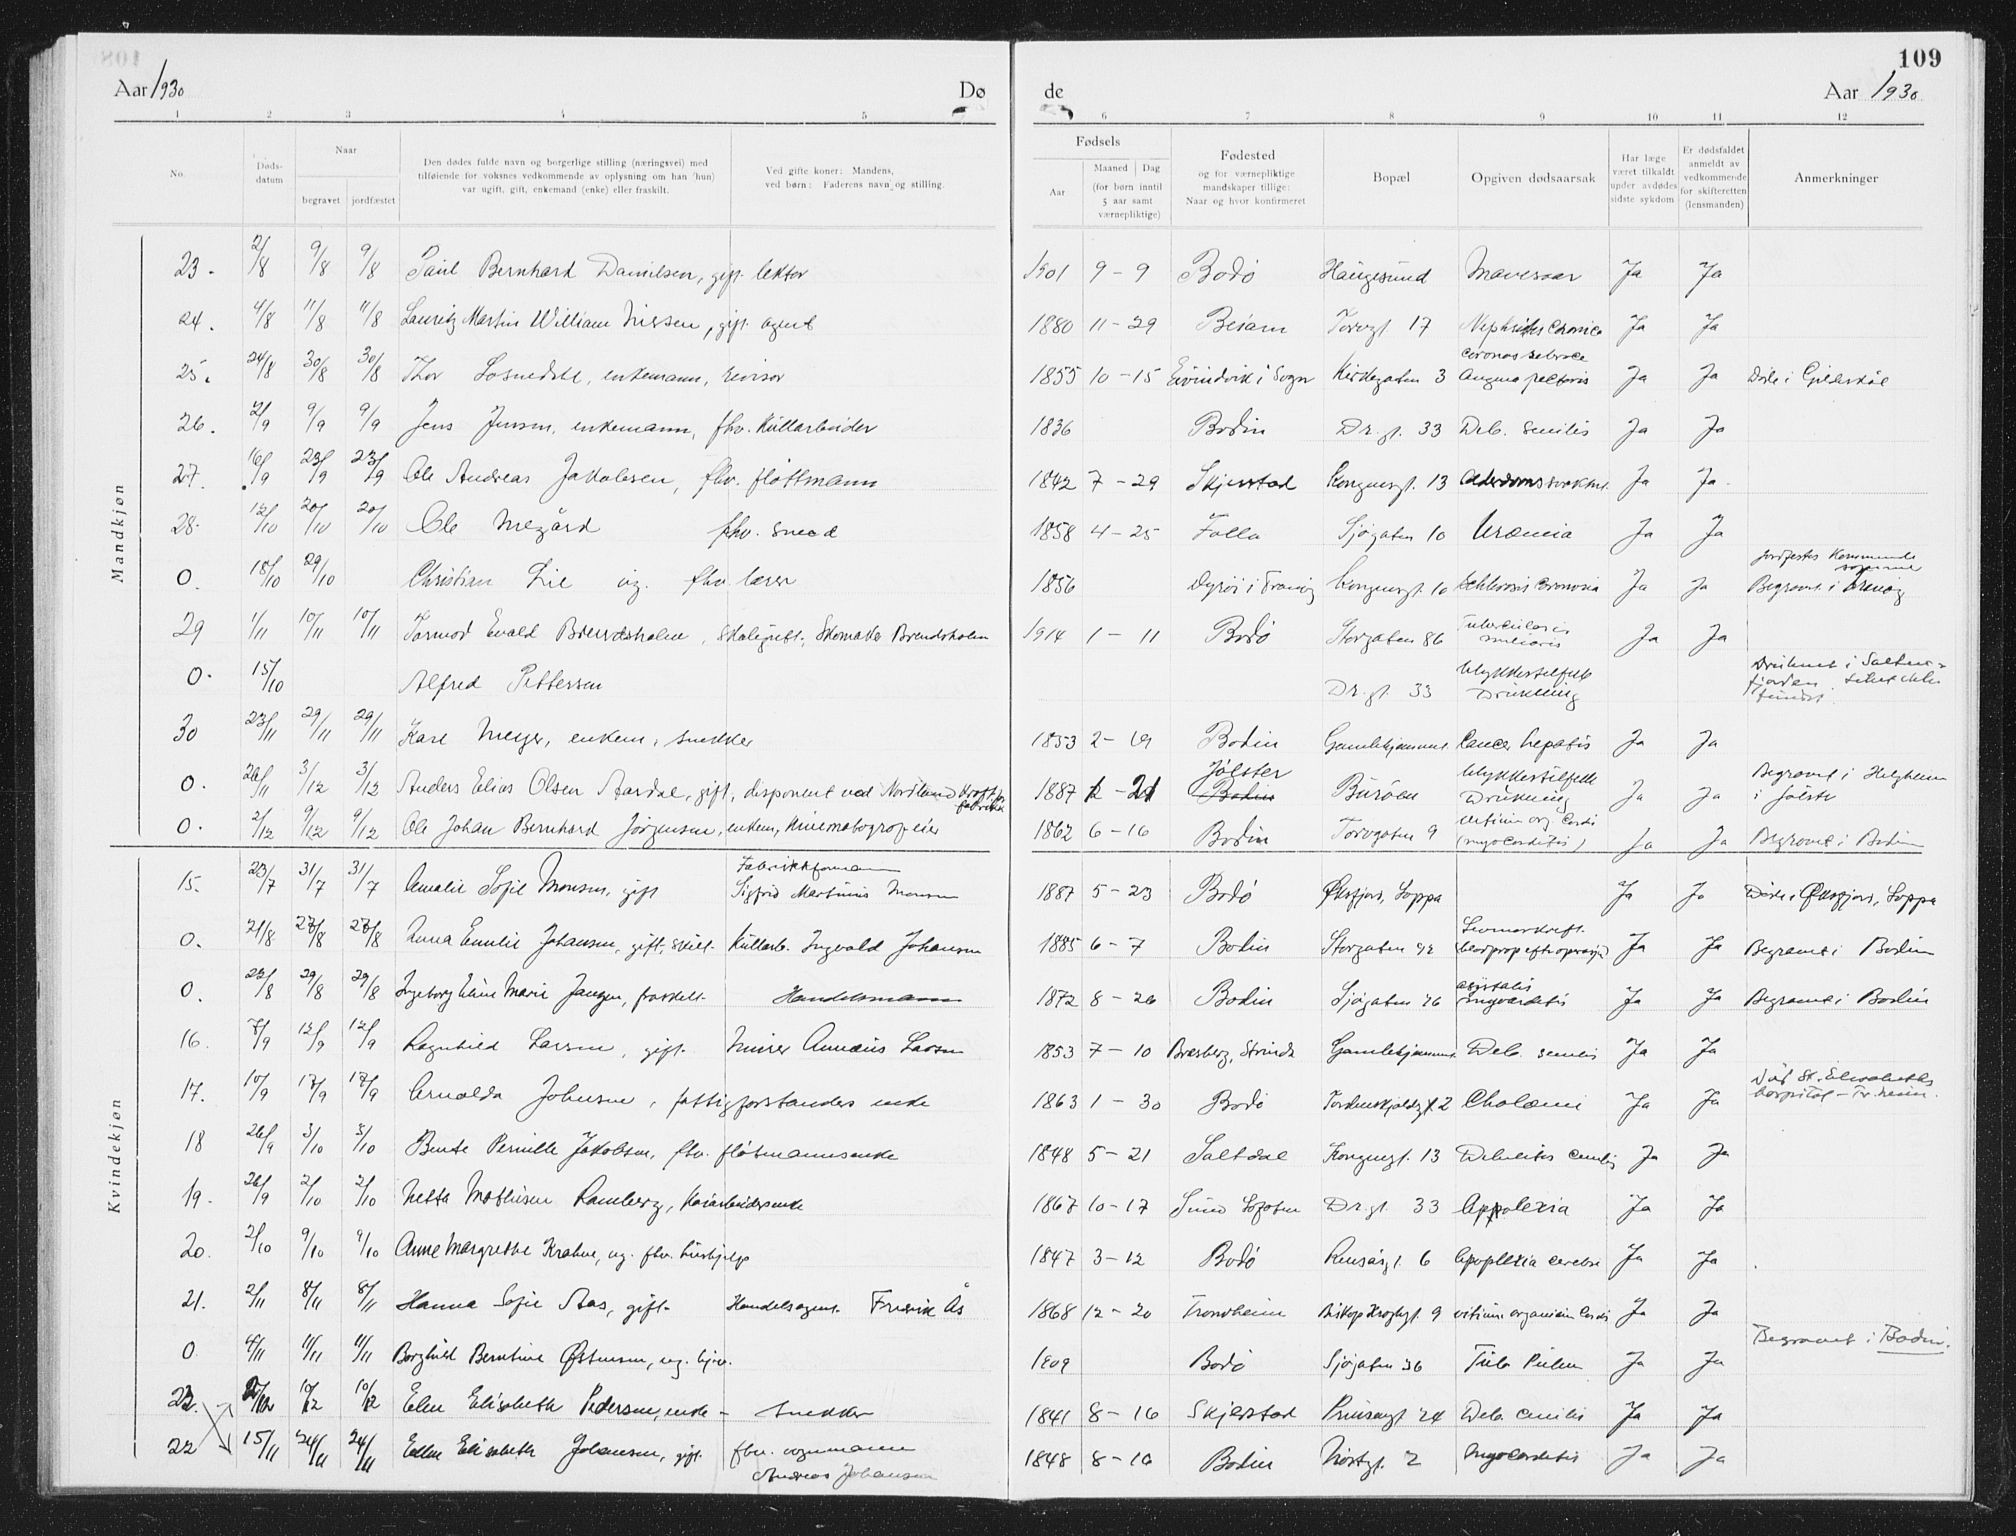 109
Aar 1930
Dø
de
Aar 1930
1 2 3 4 5 6 7 8 9 10 11 12
No.
Døds-
datum
Naar
begravet jordfæstet
Den dødes fulde navn og borgerlige stilling (næringsvei) med
tilføiende for voksnes vedkommende av oplysning om han (hun)
var ugift, gift, enkemand (enke) eller fraskilt.
Ved gifte koner: Mandens,
ved børn: Faderens navn og stilling.
Fødsels
Aar
Maaned Dag
(for børn inntil
5 aar samt
værnepliktige)
Fødested
og for værnepliktige
mandskaper tillige:
Naar og hvor konfirmeret
Bopæl
Opgiven dødsaarsak
Har læge
været tilkaldt
under avdødes
sidste sykdom
Er dødsfaldet
anmeldt av
vedkommende
for skifteretten
(lensmanden)
Anmerkninger
Mandkjøn
23. 2/8 9/8 9/8 Paul Bernhard Danielsen, gift. lektor 1901 9 - 9 Bodø Haugesund Mavesaar Ja Ja
24. 4/8 11/8 11/8 Lauritz Martin William Nissen, gift. agent 1880 11 - 29 Beiarn Torvgt. 17 Nephritis Cronica Ja Ja
25. 24/8 30/8 30/8 Thor Losnedal, enkemann, revisor 1855 10 - 15 Eivindvik i Sogn Kirkegaten 3 Angina pectoris Ja Ja Døde i Gildeskål
26. 2/9 9/9 9/9 Jens Jensen, enkemann, fhv. Kullarbeider 1836 Bodin Dr. gt. 33 Deb. senilis Ja Ja
27. 16/9 23/9 23/9 Ole Andreas Jakobsen, fhv. fløttmann 1842 7 - 29 Skjerstad Kongensgt. 13 Ja Ja
28. 12/10 20/10 20/10 Ole Megård fhv. smed 1858 4 - 25 Folla Sjøgaten 10 Uræmia Ja Ja
0. 18/10 29/10 Christian Lie ug. fhv. lærer 1856 Dyrøi i Tranøy Kongensgt. 10 Ja Ja Begravet i Tranøy
29 1/11 10/11 10/11 Tormod Evald Brændsholm, Skolegutt. Skomaker Brendsholm 1914 1 - 11 Bodø Storgaten 86 Tuberculosis miliaris Ja Ja
0. 15/10 Alfred Pettersen Dr. gt. 33 Ulykkestilfelle Drukning Druknet i Saltenfjorden
30 23/11 29/11 29/11 Kare Meyer, enkem, snekker 1853 2 - 19 Bodin Gamlehjemmet Cancer hepatis Ja Ja
0. 26/11 3/12 3/12 Anders Elias Olsen Aardal, gift, disponent ved Nordland 1887 2 - 21 Jølster Bodin Burøen Ulykkestilfelle Drukning Ja Ja Begravet i Helgheim i Jølster
0. 2/12 9/12 9/12 Ole Johan Bernhard Jørgensen, enkem, Kinematograf eier 1862 6 - 16 Bodin Torvgaten 9 vitium org. Cordis (myocarditis) Ja Ja Begravet i Bodin
Kvindekjøn
15. 23/7 31/7 31/7 Amalie Sofie Monsen, gift Fabrikkformann Sigfrid Martinus Monsen 1887 5 - 23 Bodø Øksfjord, Loppa Ja Ja Døde i Øksfjord, Loppa
0. 21/8 28/8 28/8 Anna Emilie Johansen, gift, Kullarb. Ingvald Johansen 1885 6 - 7 Bodin Storgaten 92 Ja Ja Begravet i Bodin
0. 22/8 29/8 29/8 Ingeborg Eline Marie Jangen, fraskilt. Handelsmann 1872 8 - 26 Bodin Sjøgaten 26 myocarditis Ja Ja Begravet i Bodin
16. 7/9 12/9 12/9 Ragnhild Larsen, gift. Murer Annæus Larsen 1853 7 - 10 Bræsberg, Strinda Gamlehjemmet Deb. senilis Ja Ja
17. 10/9 17/9 17/9 Arnolda Johnsen, fattigforstanders enke 1863 1 - 30 Bodø Tordenskjoldsgt. 2 Cholæmi Ja Ja Død St. Elisabeths hospital - Tr.heim.
18 26/9 3/10 3/10 Bente Pernille Jakobsen, fhv. fløtmannsenke 1848 5 - 21 Saltdal Kongensgt. 13 Debilitas senilis Ja Ja
19. 26/9 2/10 2/10 Netta Mathisen Ramberg, Havarbeidersenke 1867 10 - 17 Sund Lofoten Dr. gt. 33 Appolexia Ja Ja
20. 2/10 9/10 9/10 Anne Margrethe Krahn, ug. fhv. hushjelp 1847 3 - 12 Bodø Rensåsgt. 6 Apoplexia cerebri Ja Ja
21. 2/11 8/11 8/11 Hanna Sofie Aas, gift. Handelsagent Fredrik Ås 1868 12 - 20 Trondheim Biskop Kroghsgt. 9 vitium organicum Cordis Ja Ja
0. 4/11 11/11 11/11 Borghild Berntine Østensen, ug. hjv. 1909 Bodø Sjøgaten 36 Tub. Pulm Ja Ja Begravet i Bodin.
23. 2/12 10/12 10/12 Elen Elisabeth Pedersen, enke - snekker 1841 8 - 16 Skjerstad Prinsensgt 24 Deb. senilis Ja Ja
22 15/11 24/11 24/11 Ellen Elisabeth Johansen, gift. fhv. vognmann Andreas Johansen 1848 8 - 10 Bodin Nørregt. 2 Myocarditis Ja Ja